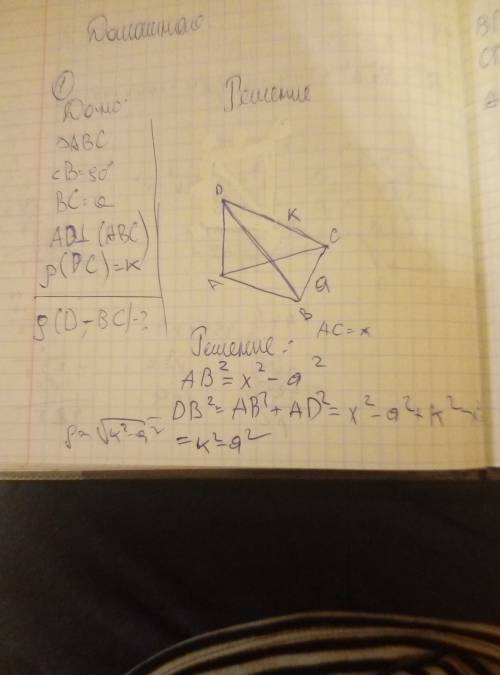 Домашнаю
①
Дано:
△ABC
∠B=90°
BC=a
AD⊥(ABC)
ρ(DC)=k
ρ(D,-BC)-?
Решение
D
K
C
A
a
B
AC=x
Решение:
AB²=x²-a²
DB²=AB²+AD²=x²-a²+k²-x²
=k²-a²
ρ=√k²-a²